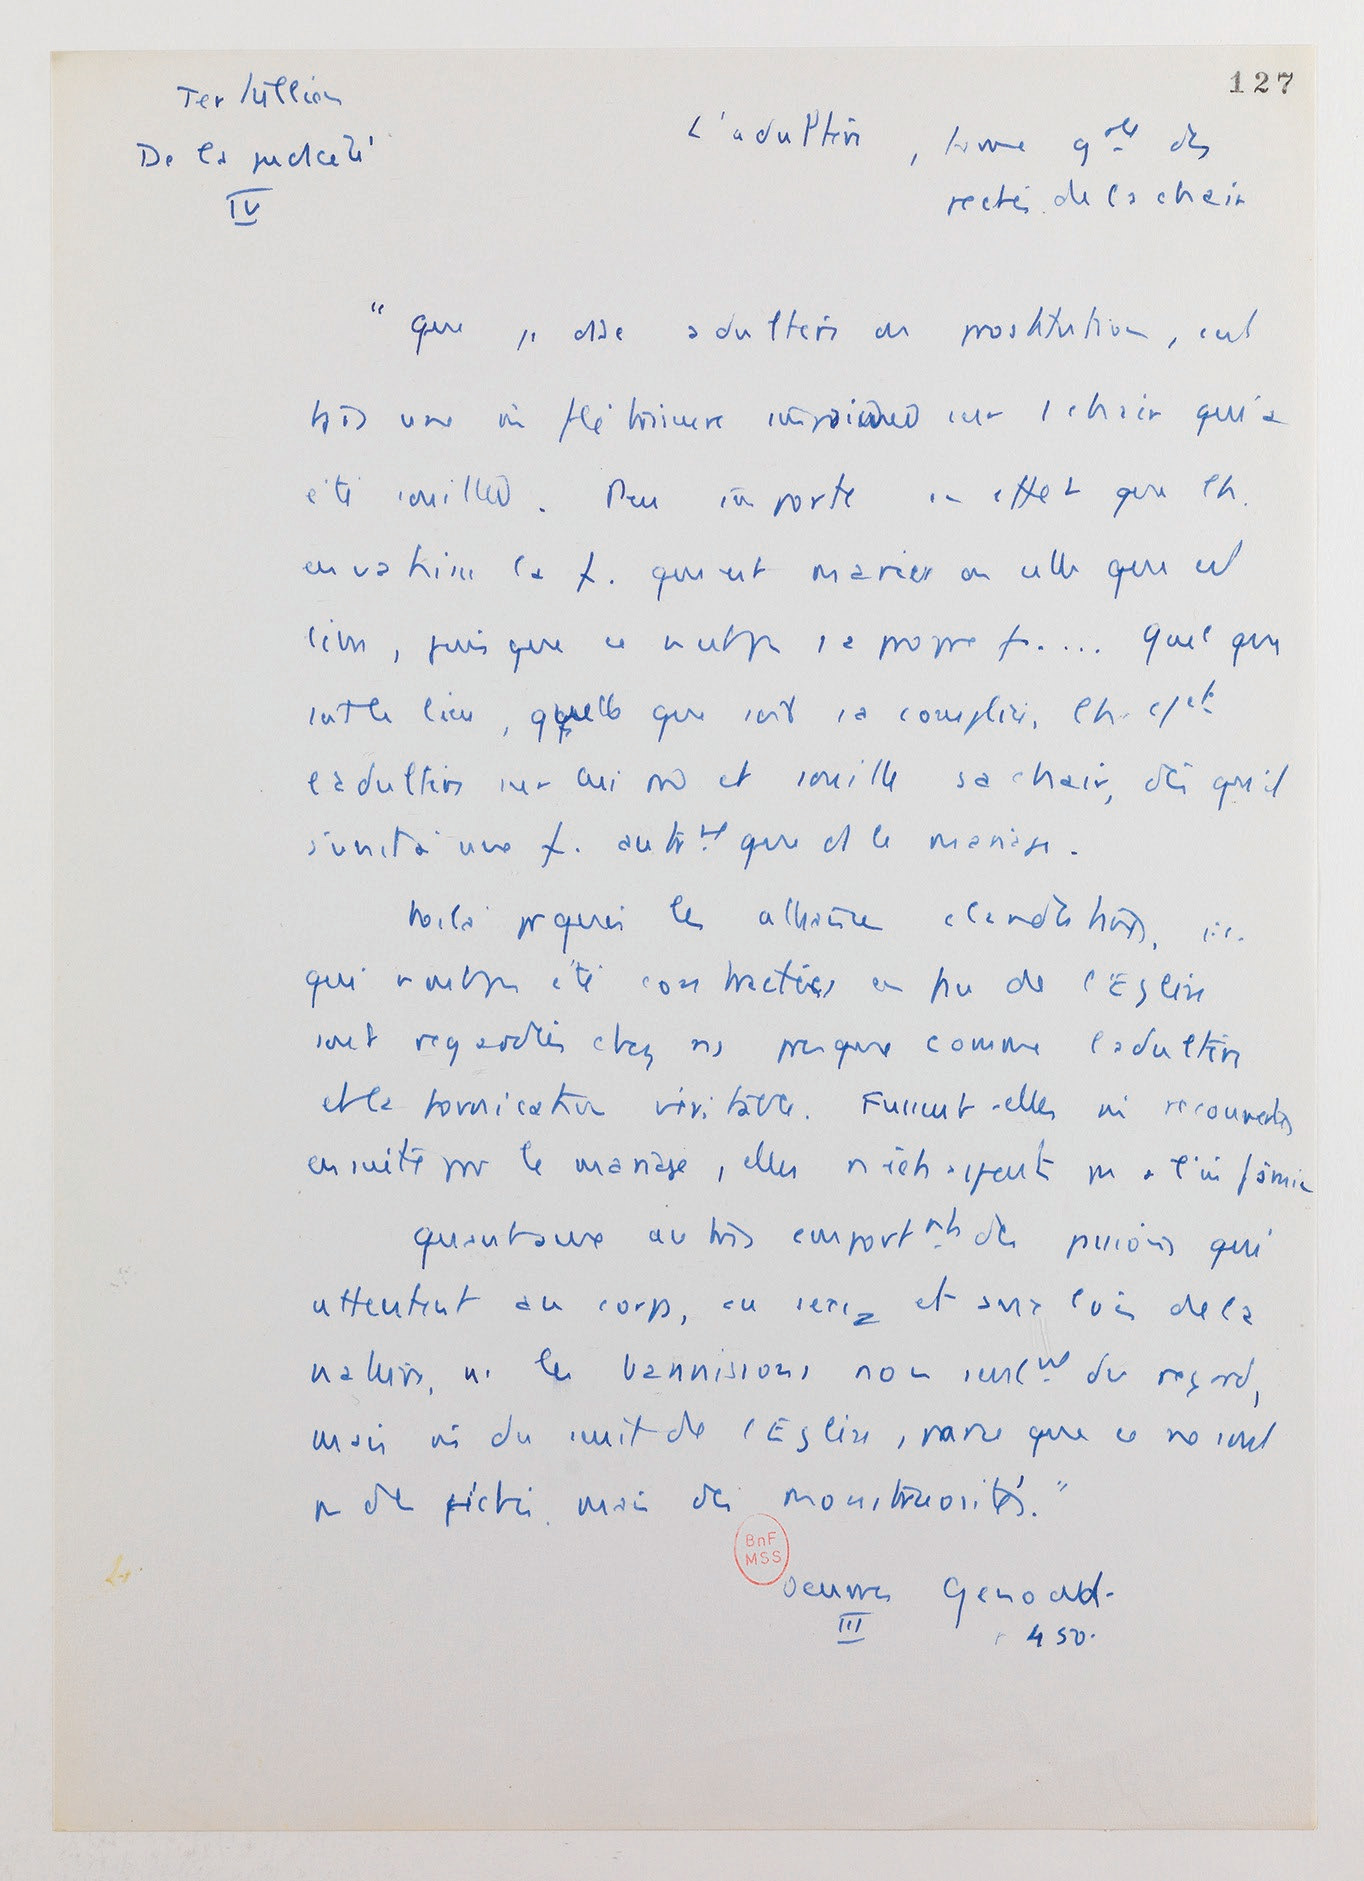 127
Tertullien
De la pudicité
IV
L'adultère, forme gale des
péchés de la chair
" que je dise adultère ou prostitution, c'est
tjs une flétrissure imprimée sur 1 chair qui a
été souillée. Peu importe en effet que l'h.
envahisse la f. qui est mariée ou celle qui est
libre, puisque ce n'est pas sa propre f.... Quel que
soit le lieu, quelle que soit sa complice, l'h. c/et
l'adultère sur lui m̂ et souille sa chair, dès qu'il
s'unit à une f. autrt que ds le mariage.
Voilà pquoi les alliances clandestines, i.e.
qui n'ont pas été contractées en face de l'Eglise
sont regardées chez ns presque comme l'adultère
et la fornication véritable. Fussent-elles recouvertes
ensuite par le mariage, elles n'échappent pas à l'infamie
Quant aux autres emportmts des passions qui
attentent au corps, au sexe et aux lois de la
nature, ns les bannissons non seult du regard,
mais du toit de l'Eglise, parce que ce ne sont
pas des péchés mais des monstruosités."
BnF
MSS
Oeuvres Genoud.
III 450.